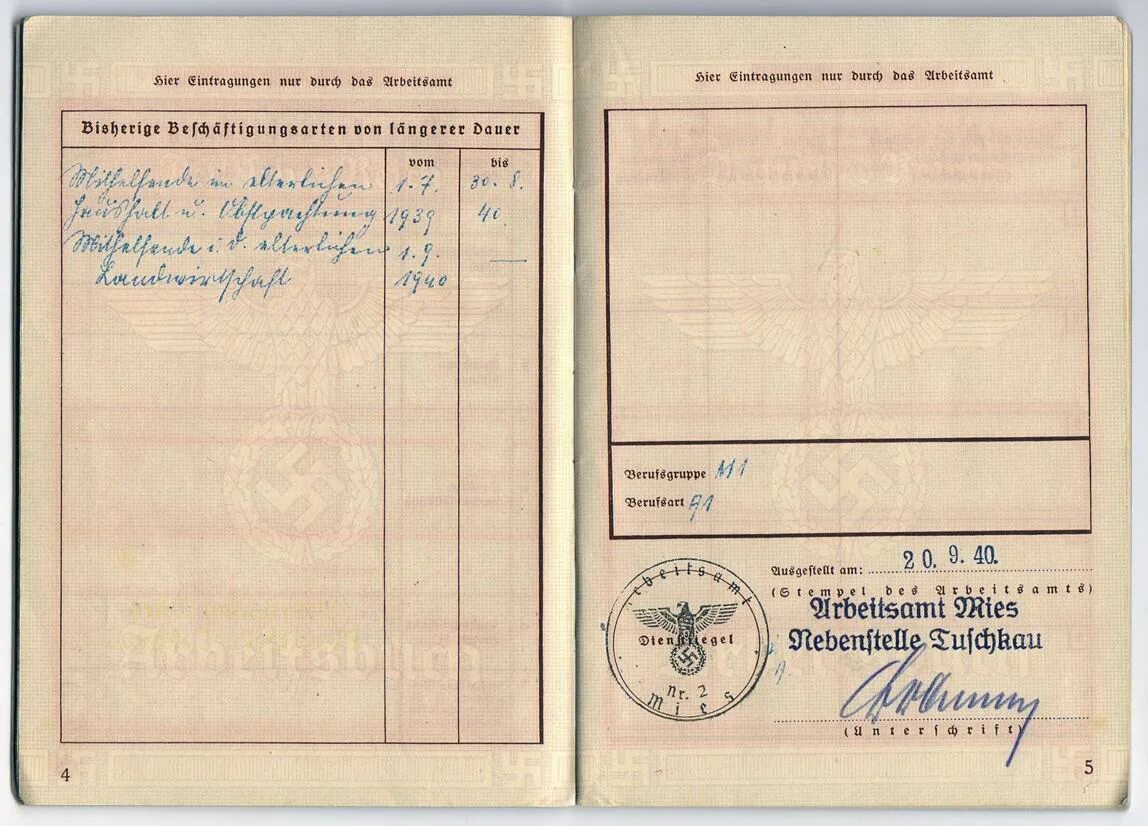 Hier Eintragungen nur durch das Arbeitsamt
Bisherige Beschäftigungsarten von längerer Dauer
vom
bis
Mithelfende im elterlichen 1.7. 30. 8.
Haushalt u. Obstpachtung 1939 40.
Mithelfende i. d. elterlichen 1.9. —
Landwirtschaft 1940
4
Hier Eintragungen nur durch das Arbeitsamt
Berufsgruppe
Berufsart
Ausgestellt am: 20. 9. 40.
(Stempel des Arbeitsamts)
Arbeitsamt Mies
Nebenstelle Tuschkau
(Unterschrift)
Arbeitsamt
Dienstsiegel
Nr. 2
Mies
5